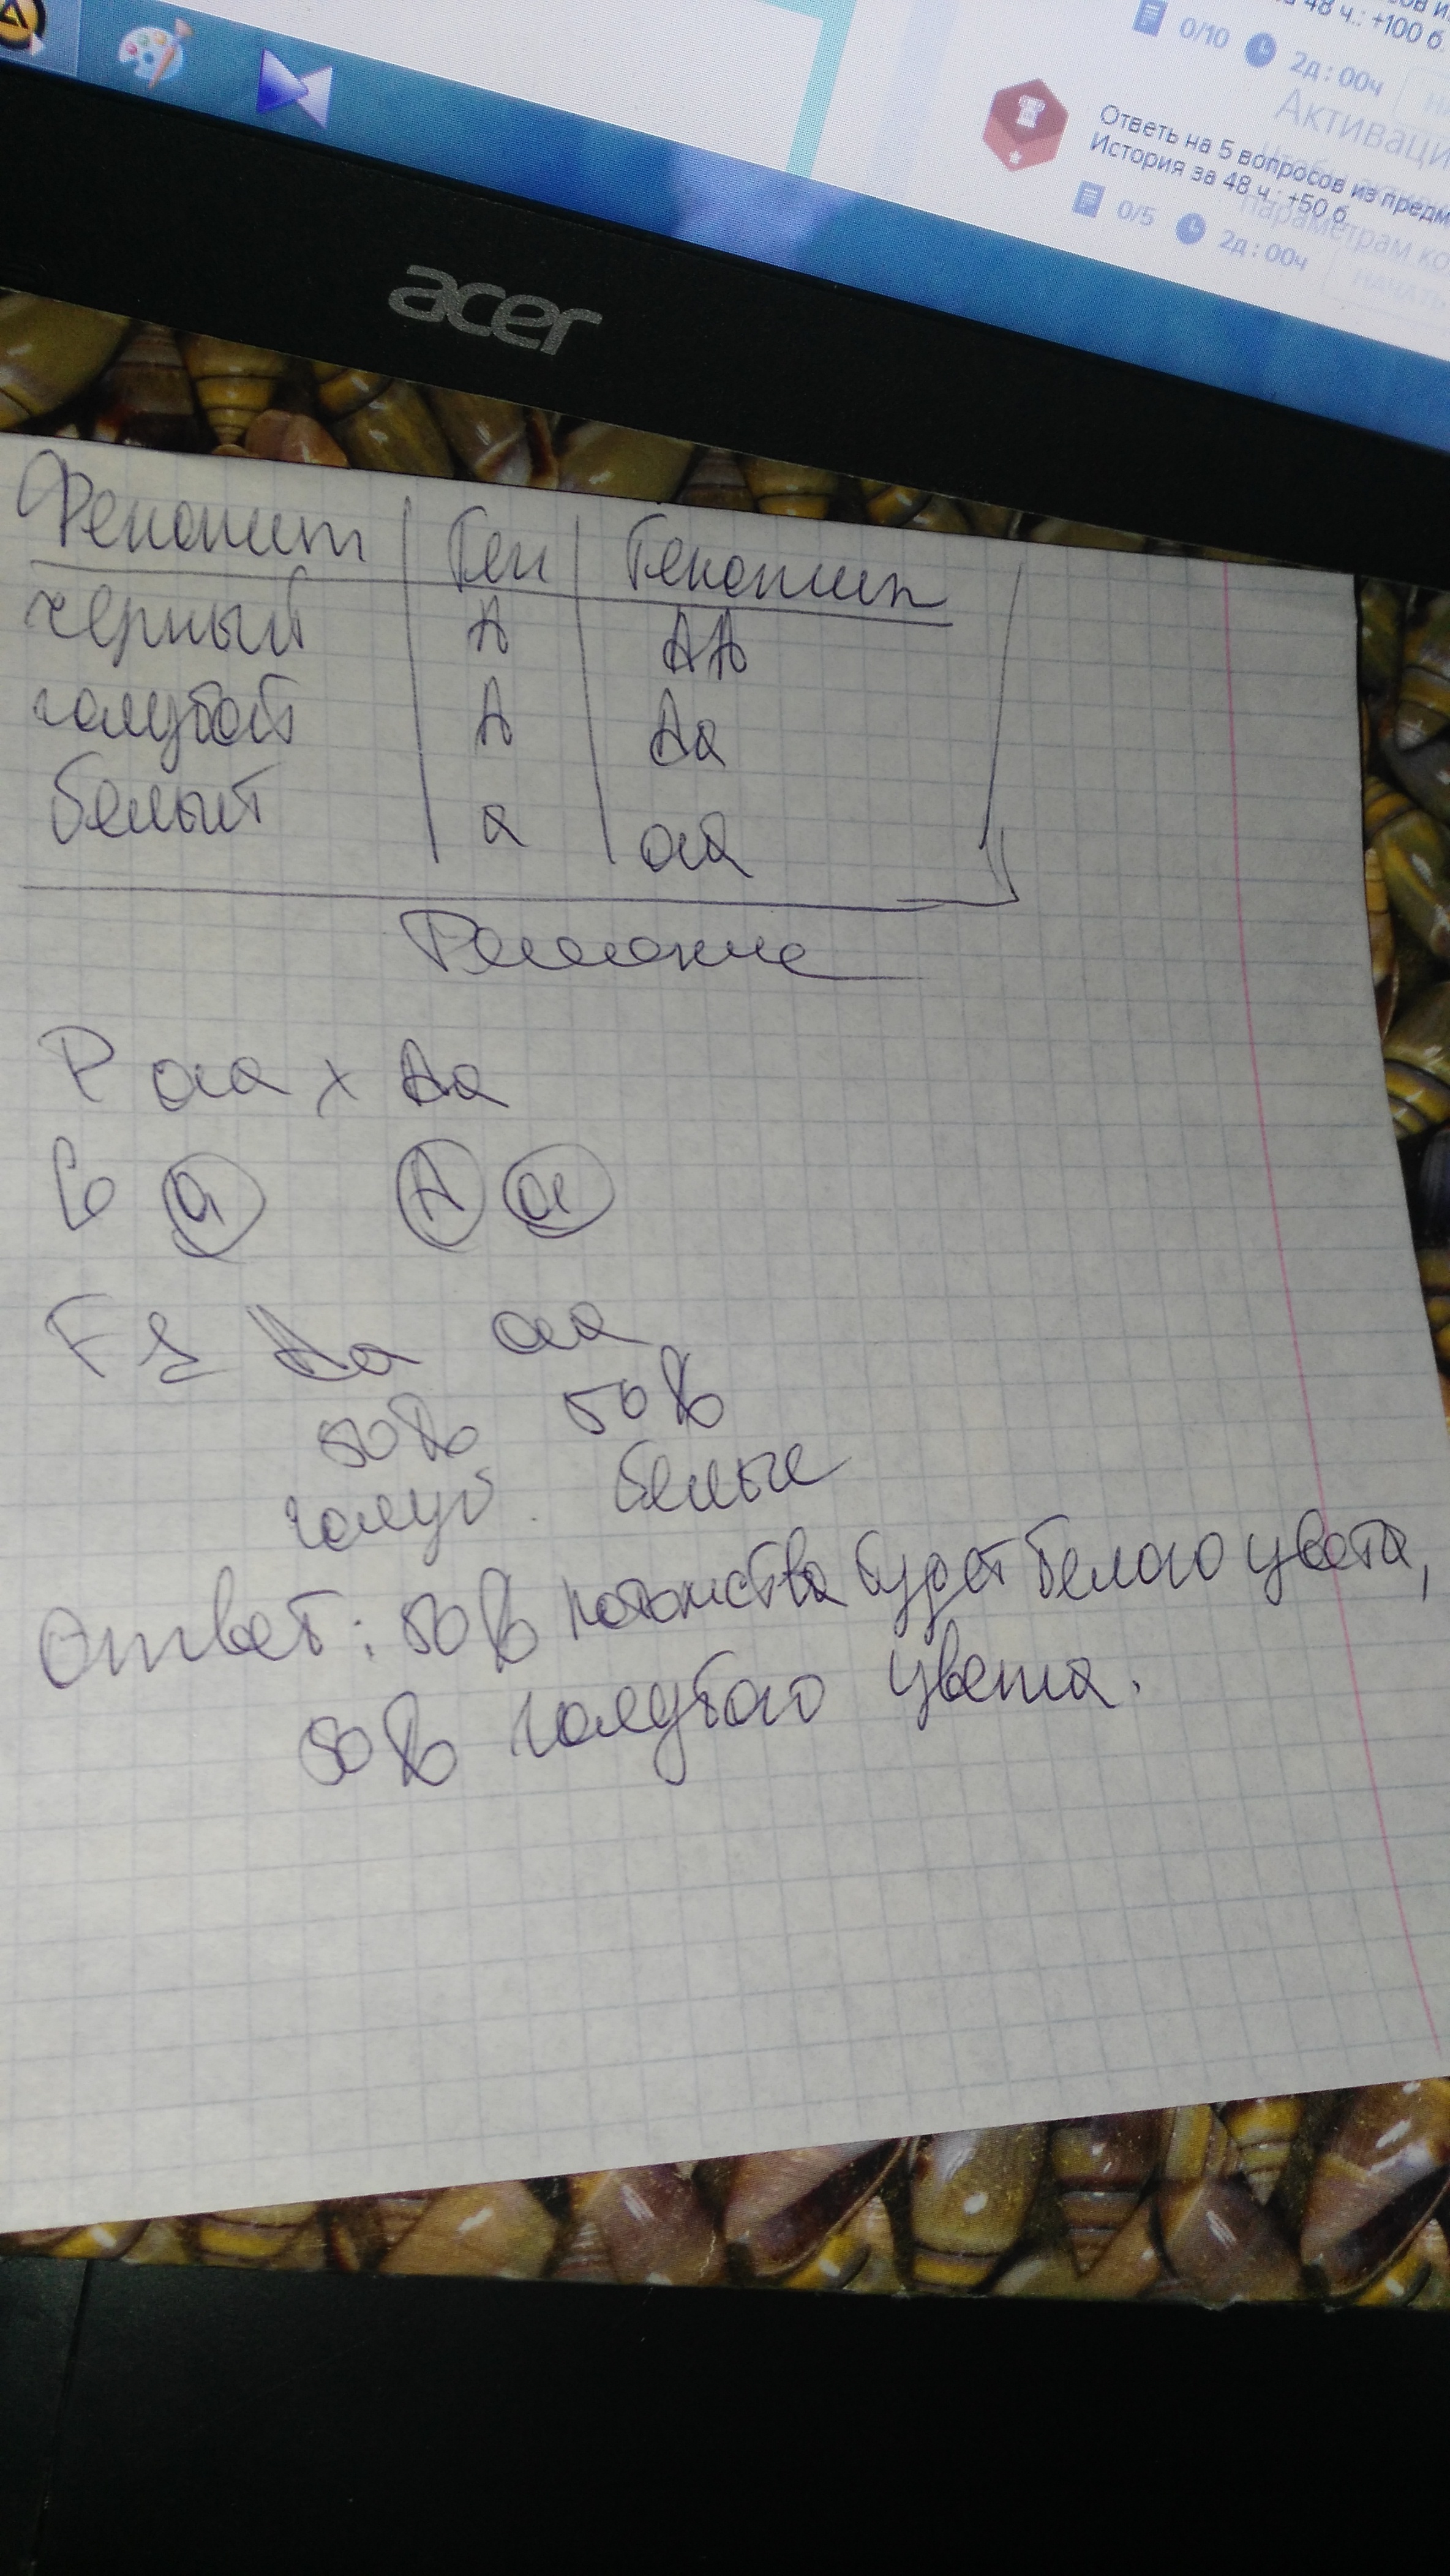 48 ч.: +100 б.
0/10 2д : 00ч
Активаци
Ответь на 5 вопросов из предм
История за 48 ч.: +50 б.
параметрам ко
0/5 2д : 00ч
начать
acer
Фенонит Ген Генотип
черный А АА
голубой А Аа
белый а аа
Решение
Р аа х Аа
G а А а
F1 Аа аа
50% 50%
голуб. белые
Ответ: 50% потомства будет белого цвета,
50% голубого цвета.